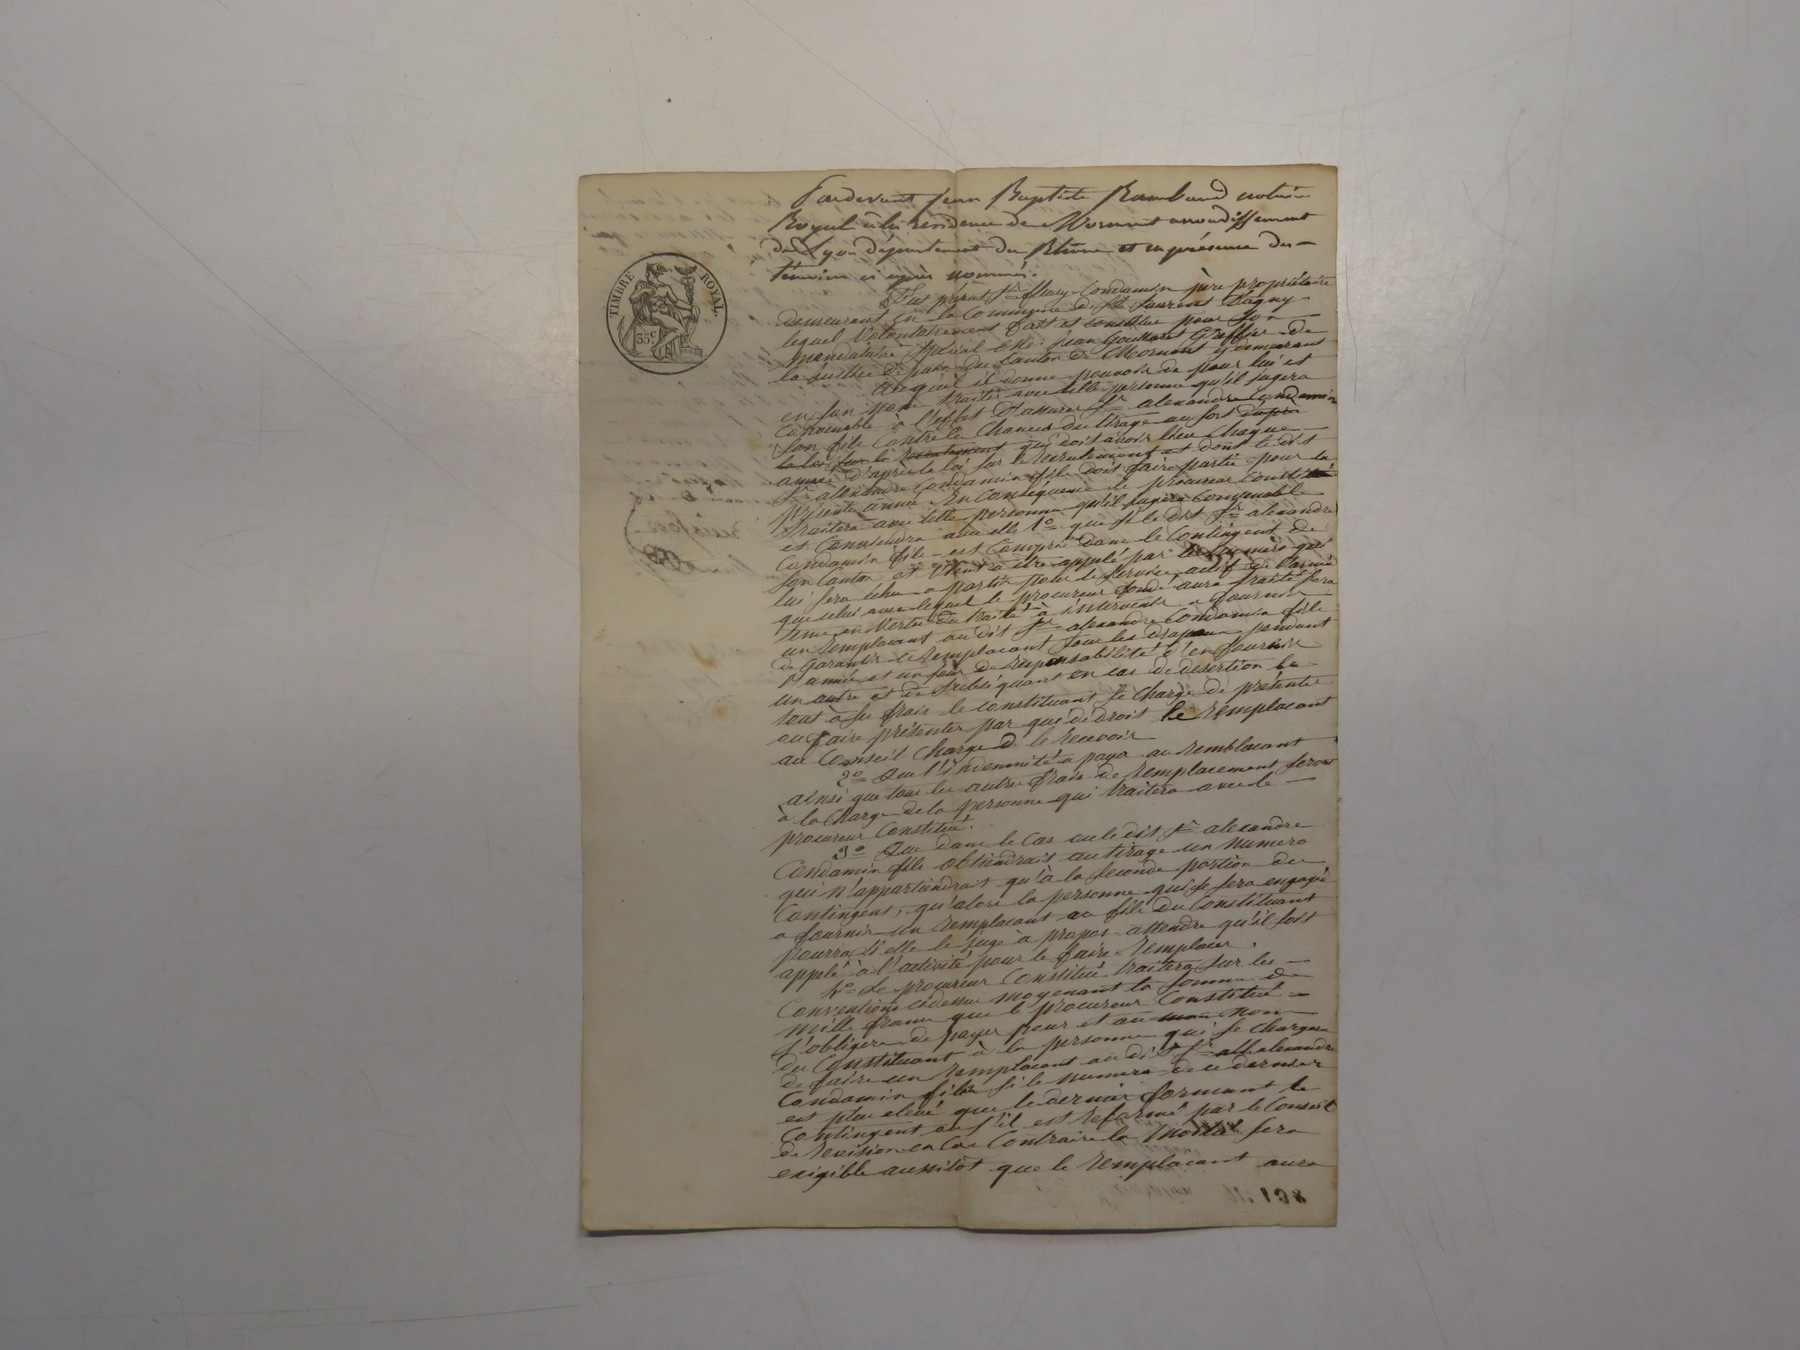 Pardevant jean Baptiste Rambaud notaire
Royal à la résidence de Mornant arrondissement
de Lyon département du Rhône et en présence des
témoins ci après nommés.
TIMBRE ROYAL
35 c
Fut présent Sr fleury Condamin père propriétaire
demeurant en la Commune de St Laurent d'agny
lequel Volontairement fait et constitue pour Son
mandataire Spécial Me jean Greffier de
la justice de paix du Canton de Mornant y demeurant
Auquel il donne pouvoir de pour lui et
en son nom traiter avec telle personne qu'il jugera
Convenable à l'effet d'assurer Sr alexandre Condamin
son fils Contre les Chances du tirage au sort dapres
la loi sur le recrutement qui doit avoir lieu chaque
année d'après la loi sur le recrutement et dont le dit
Sr alexandre Condamin fils doit faire partie pour la
présente année En Conséquence le procureur Constitué
traitera avec telle personne qu'il jugera Convenable
et Conviendra avec elle 1o que si le dit Sr alexandre
Condamin fils est Compris dans le Contingent de
son Canton et Vient a être appelé par le numéro qui
lui sera échu a partir pour le Service actif de l'armée
que celui avec lequel le procureur fondé aura traité sera
tenu en Vertu du traité à intervenir a fournir
un remplacant au dit Sr alexandre Condamin fils
de garantir le remplacant sous les drapeaux pendant
l'année et un jour de responsabilité d'en fournir
un autre et de Subséquant en cas de desertion le
tout à ses frais le constituant Se charge de présenter
ou faire présenter par qui de droit le remplacant
au Conseil Chargé de le recevoir
2o Que l'indemnité a payer au remblacant
ainsi que tous les autre frais de remplacement seront
à la charge de la personne qui traitera avec le
procureur Constitué.
3o Que dans le Cas ou le dit Sr alexandre
Condamin fils obtiendrait au tirage un numero
qui n'appartiendrait qu'à la seconde portion du
Contingent, qu'alors la personne qui se sera engagé
a fournir un remplacant au fils du Constituant
pourra si elle le juge à propos attendre qu'il soit
applé à l'activité pour le faire remplacer.
4o Le procureur Constitué traitera sur les
Conventions cidessus moyenant la somme de
mille francs que le procureur Constitué
s'obligera de payer pour et au mon nom
du Constituant à la personne qui se chargera
de faire un remplacant au dit Sr alexandre
Condamin fils si le numero de ce dernier
est plus elevé que le dernier formant le
Contingent ou s'il est réformé par le Conseil
de revision en Cas Contraire la moitié sera
exigible aussitôt que le remplacant aura